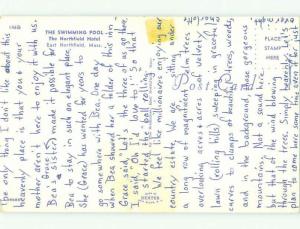 140
THE SWIMMING POOL
The Northfield Hotel
East Northfield, Mass.
PLACE
STAMP
HERE
DEXTER
The only thing I don't like about this
heavenly place is that you & your
mother aren't here to enjoy it with us.
Bea's sister made it possible for Grace &
Bea to stay in such an elegant place.
She (Grace) has wanted for years to
go somewhere with Bea. One day
when Bea showed her a folder of this inn
Grace said "Let's the three of us go there.
I said, Oh I'd love to! So that
started the ball rolling.
We feel like millionaires enjoying our
country estate. We are sitting under
a long row of magnificent elm trees
overlooking acres of velvety
lawn (rolling hills) sweeping in graceful
curves to clumps of trees, woods,
and in the background, those gorgeous
mountains. Not a sound here
but that of the wind blowing
through the trees. Simply heavenly! Let's
plan to come here some time, even if it's just
overnight.
Charlotte